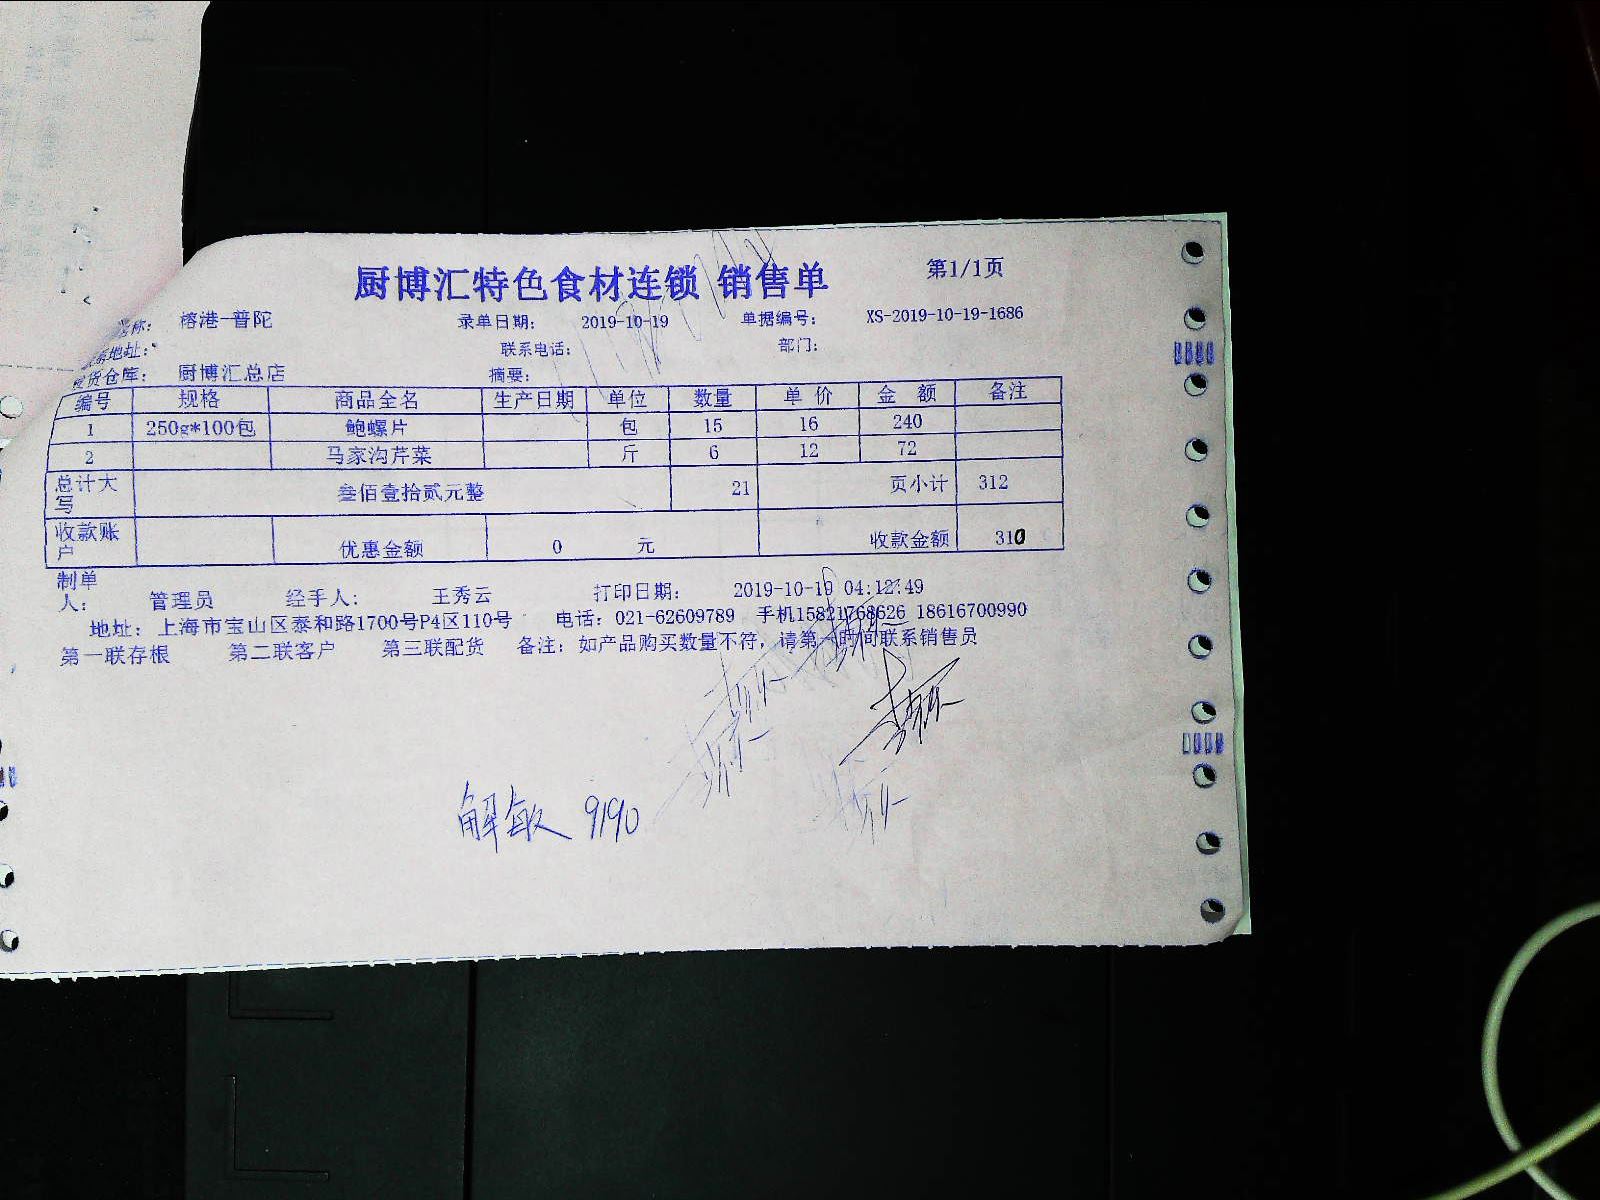 厨博汇特色食材连锁 销售单 第1/1页
称: 榕港-普陀 录单日期: 2019-10-19 单据编号: XS-2019-10-19-1686
系地址: 联系电话: 部门:
货仓库: 厨博汇总店 摘要:
编号 规格 商品全名 生产日期 单位 数量 单价 金额 备注
1 250g*100包 鲍螺片 包 15 16 240
2 马家沟芹菜 斤 6 12 72
总计大写 叁佰壹拾贰元整 21 页小计 312
收款账户 优惠金额 0 元 收款金额 310
制单人: 管理员 经手人: 王秀云 打印日期: 2019-10-19 04:12:49
地址: 上海市宝山区泰和路1700号P4区110号 电话: 021-62609789 手机15821768626 18616700990
第一联存根 第二联客户 第三联配货 备注: 如产品购买数量不符, 请第一时间联系销售员
解敏 9190